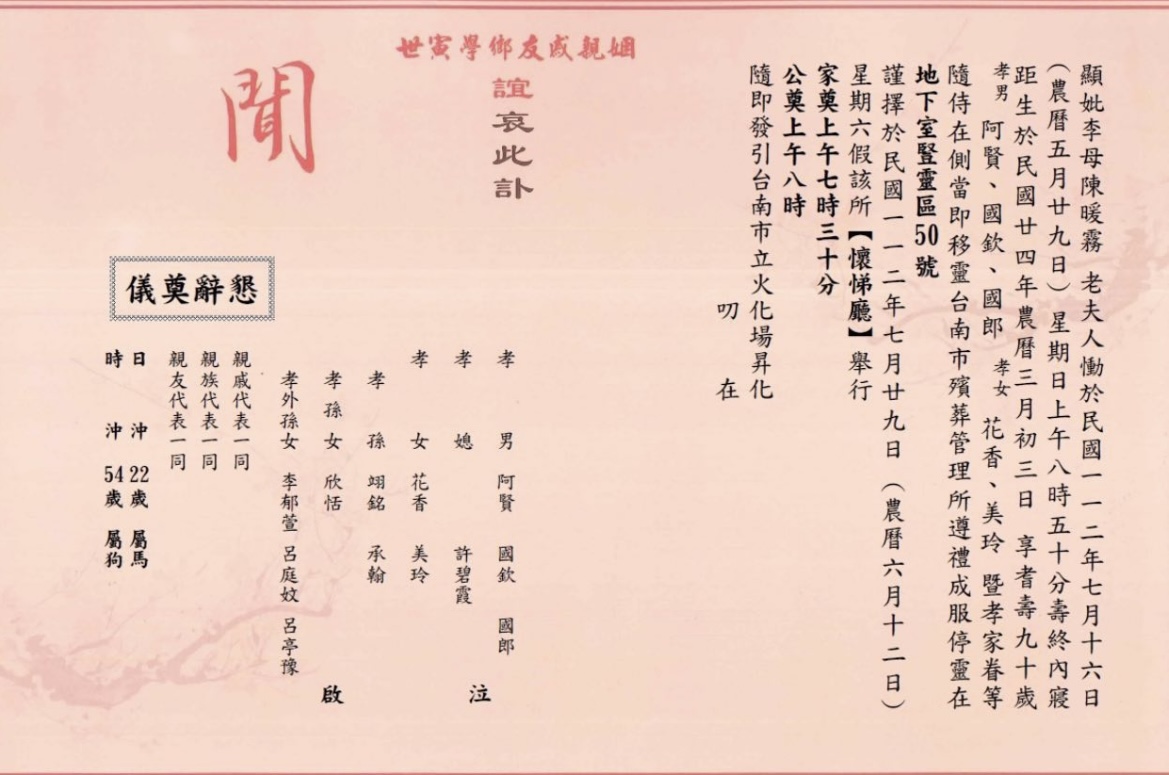 顯妣李母陳暖霧 老夫人慟於民國一一二年七月十六日
（農曆五月廿九日）星期日上午八時五十分壽終內寢
距生於民國廿四年農曆三月初三日 享耆壽九十歲
孝男 阿賢、國欽、國郎 孝女 花香、美玲 暨孝家眷等
隨侍在側當即移靈台南市殯葬管理所遵禮成服停靈在
地下室豎靈區50號
謹擇於民國一一二年七月廿九日（農曆六月十二日）
星期六假該所【懷悌廳】舉行
家奠上午七時三十分
公奠上午八時
隨即發引台南市立火化場昇化
叨 在
姻親戚友鄉學寅世
誼哀此訃
聞
懇辭奠儀
孝男 阿賢 國欽 國郎
孝媳 許碧霞
孝女 花香 美玲
孝孫 翊銘 承翰
孝孫女 欣恬
孝外孫女 李郁萱 呂庭妏 呂亭豫
泣
啟
親戚代表一同
親族代表一同
親友代表一同
日 沖 22歲 屬馬
時 沖 54歲 屬狗